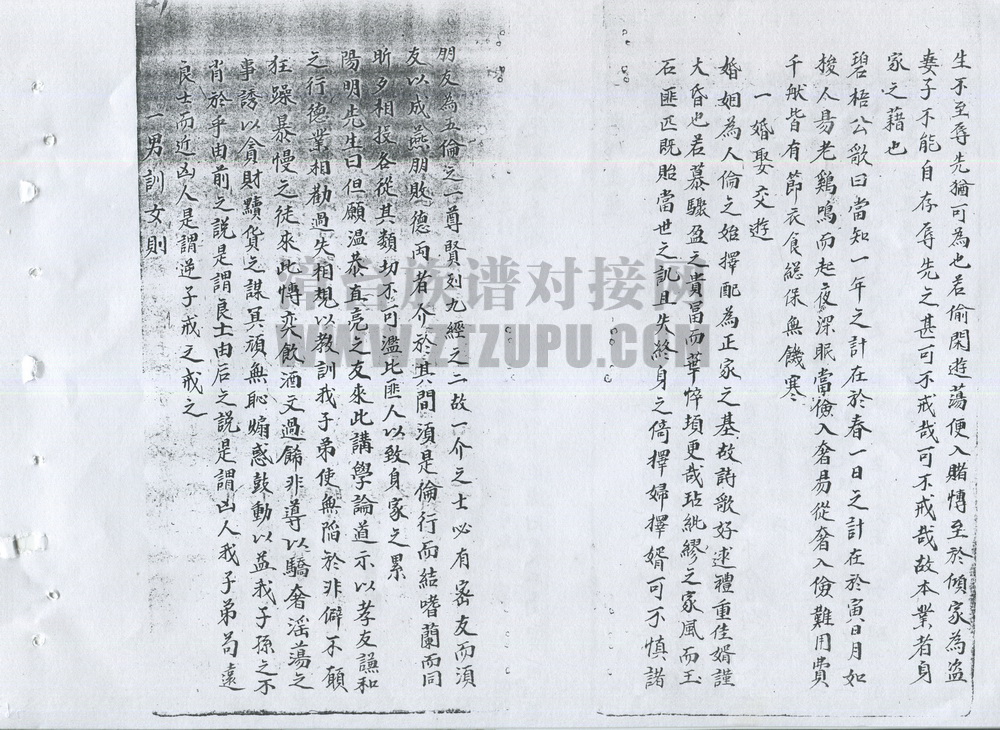 生不至辱先猶可為也若偷閑遊蕩便入賭愽至於傾家為盜
妻子不能自存辱先之甚可不戒哉可不戒哉故本業者身
家之藉也
碧梧公歌曰當知一年之計在於春一日之計在於寅日月如
梭人易老鷄鳴而起夜深眠當儉入奢易從奢入儉難用費
千般皆有節衣食総保無饑寒
一婚娶交遊
婚姻為人倫之始擇配為正家之基故詩歌好逑禮重佳婿謹
大昏也若慕驟盈之貴冨而華悴頃更哉玷紕繆之家風而玉
石匪匹既貽當世之訕且失終身之倚擇婦擇婿可不慎諸
朋友為五倫之一尊賢列九經之二故一介之士必有宻友而須
友以成燕朋敗德两者介於其間須是倫行而結嗜蘭而同
昕夕相投各從其類切不可濫比匪人以致身家之累
陽明先生曰但願温恭直亮之友來此講學論道示以孝友謙和
之行德業相勸過失相規以教訓我子弟使無陷於非僻不願
狂躁暴慢之徒來此愽奕飲酒文過餙非導以驕奢淫蕩之
事誘以貪財黷貨之謀冥頑無恥煽惑鼓動以益我子孫之不
肖於乎由前之說是謂良士由后之說是謂凶人我子弟苟遠
良士而近凶人是謂逆子戒之戒之
一男訓女則
族谱对接网
WWW.ZTZUPU.COM